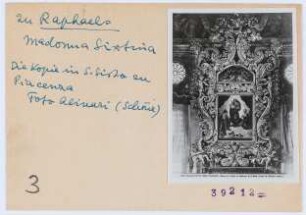 zu Raphaels
Madonna Sixtina
Die Kopie in S. Sisto zu
Piacenza
Foto Alinari
3
39212